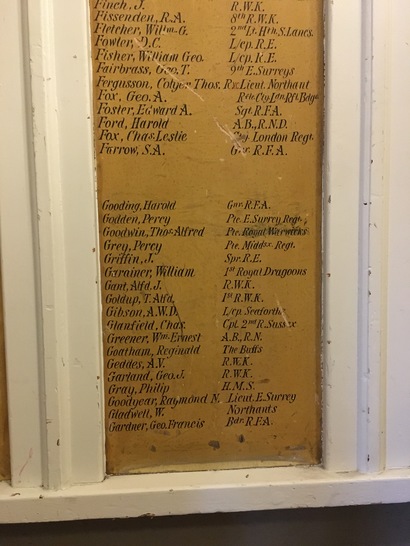 Finch, J. R.W.K.
Fissenden, R.A. 8th R.W.K.
Fletcher, Willm. G. 2nd Lt. Hth. S. Lancs.
Fowler, D.C. L/cp. R.E.
Fisher, William Geo. L/cp. R.E.
Fairbrass, Geo. T. 9th E. Surreys
Fergusson, Colyer Thos. Lieut. Northant
Fox, Geo. A.
Foster, Edward A. Sgt. R.F.A.
Ford, Harold A.B., R.N.D.
Fox, Chas. Leslie London Regt.
Farrow, S.A. Gnr. R.F.A.
Gooding, Harold Gnr. R.F.A.
Godden, Percy Pte. E. Surrey Regt.
Goodwin, Thos. Alfred Pte. Royal Warwicks
Grey, Percy Pte. Middsx. Regt.
Griffin, J. Spr. R.E.
Garainer, William 1st Royal Dragoons
Gant, Alfd. J. R.W.K.
Goldup, T. Alfd. 1st R.W.K.
Gibson, A.W.D. L/cp. Seaforths
Glanfield, Chas. Cpl. 2nd R. Sussex
Greener, Wm. Ernest A.B., R.N.
Goatham, Reginald The Buffs
Geddes, A.V. R.W.K.
Garland, Geo. J. R.W.K.
Gray, Philip H.M.S.
Goodyear, Raymond N. Lieut. E. Surrey
Gladwell, W. Northants
Gardner, Geo. Francis Bdr. R.F.A.